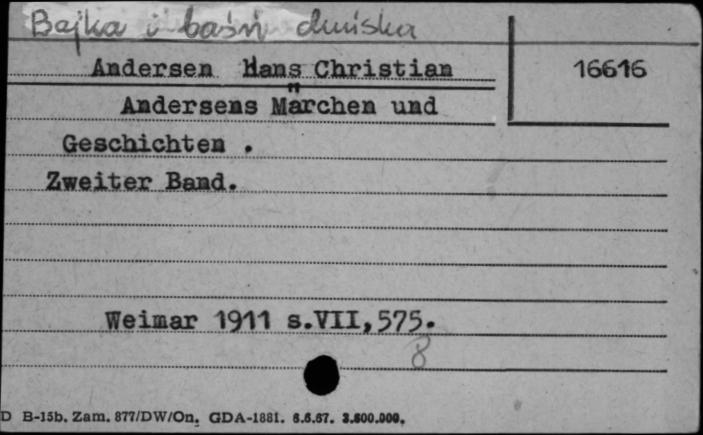 Bajka i baśń duńska
Andersen Hans Christian 16616
Andersens Märchen und
Geschichten .
Zweiter Band.
Weimar 1911 s.VII,575.
8
D B-15b. Zam. 877/DW/On. GDA-1881. 6.6.67. 3.800.000.